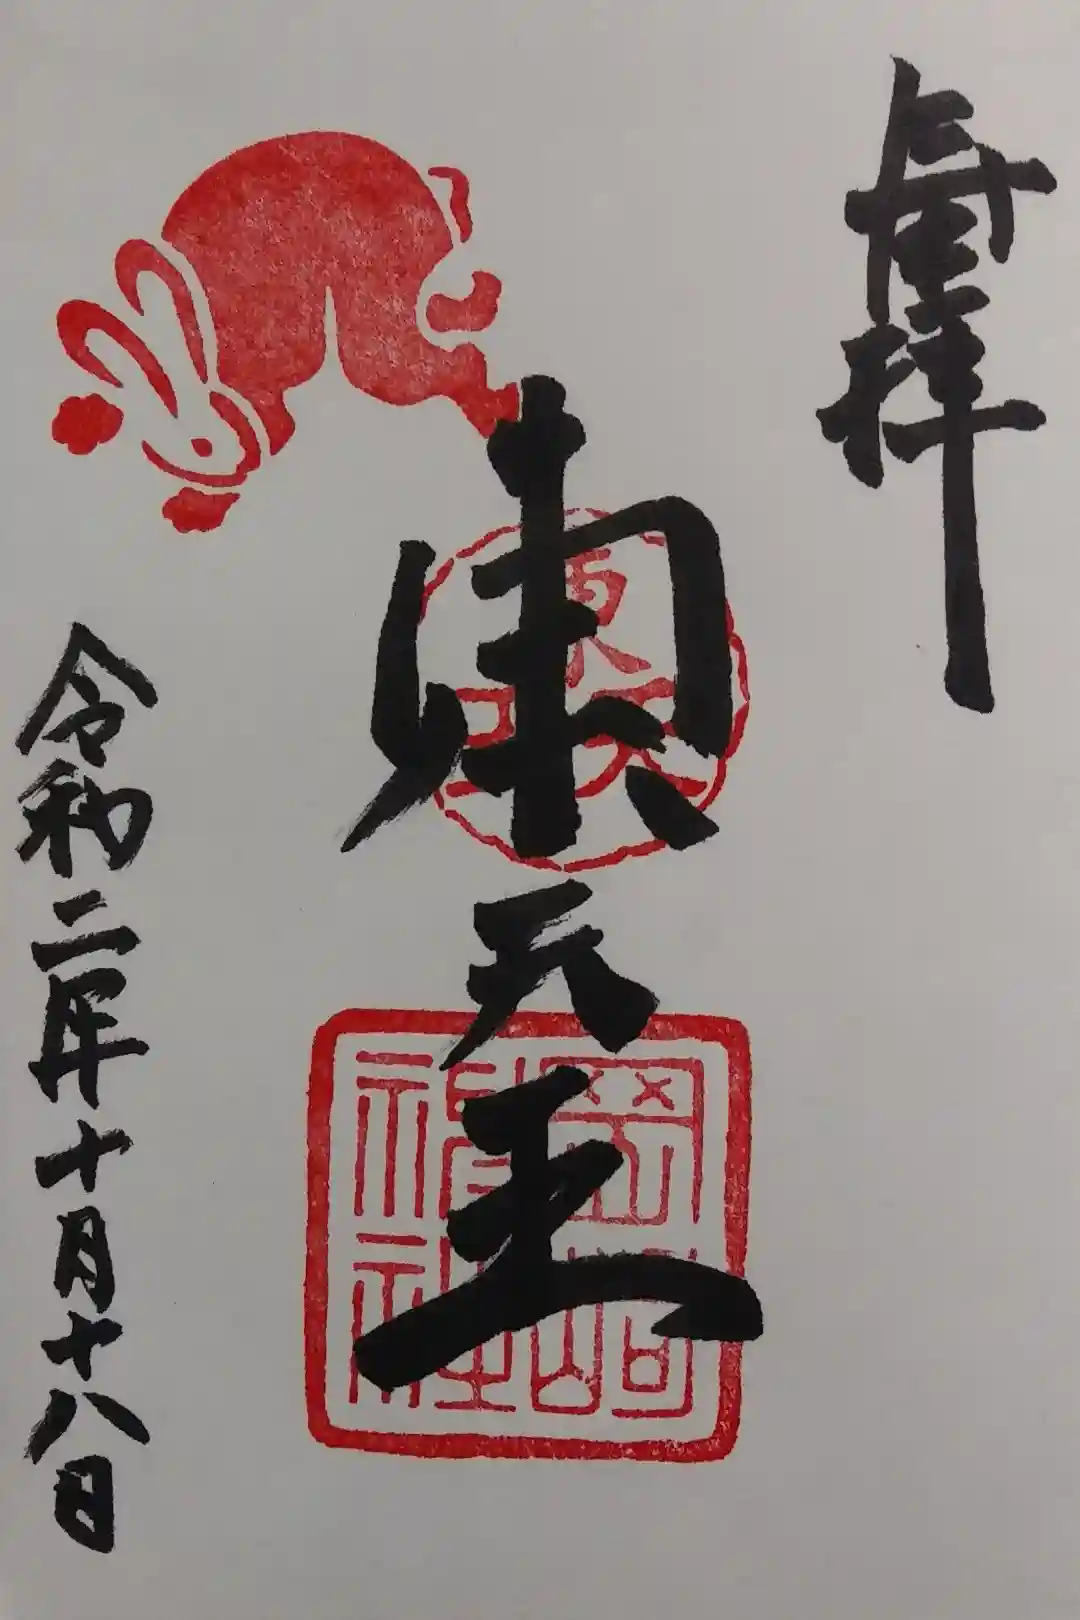 虔拝
東天王
令和二年十月十八日
東天王
岡崎
神社